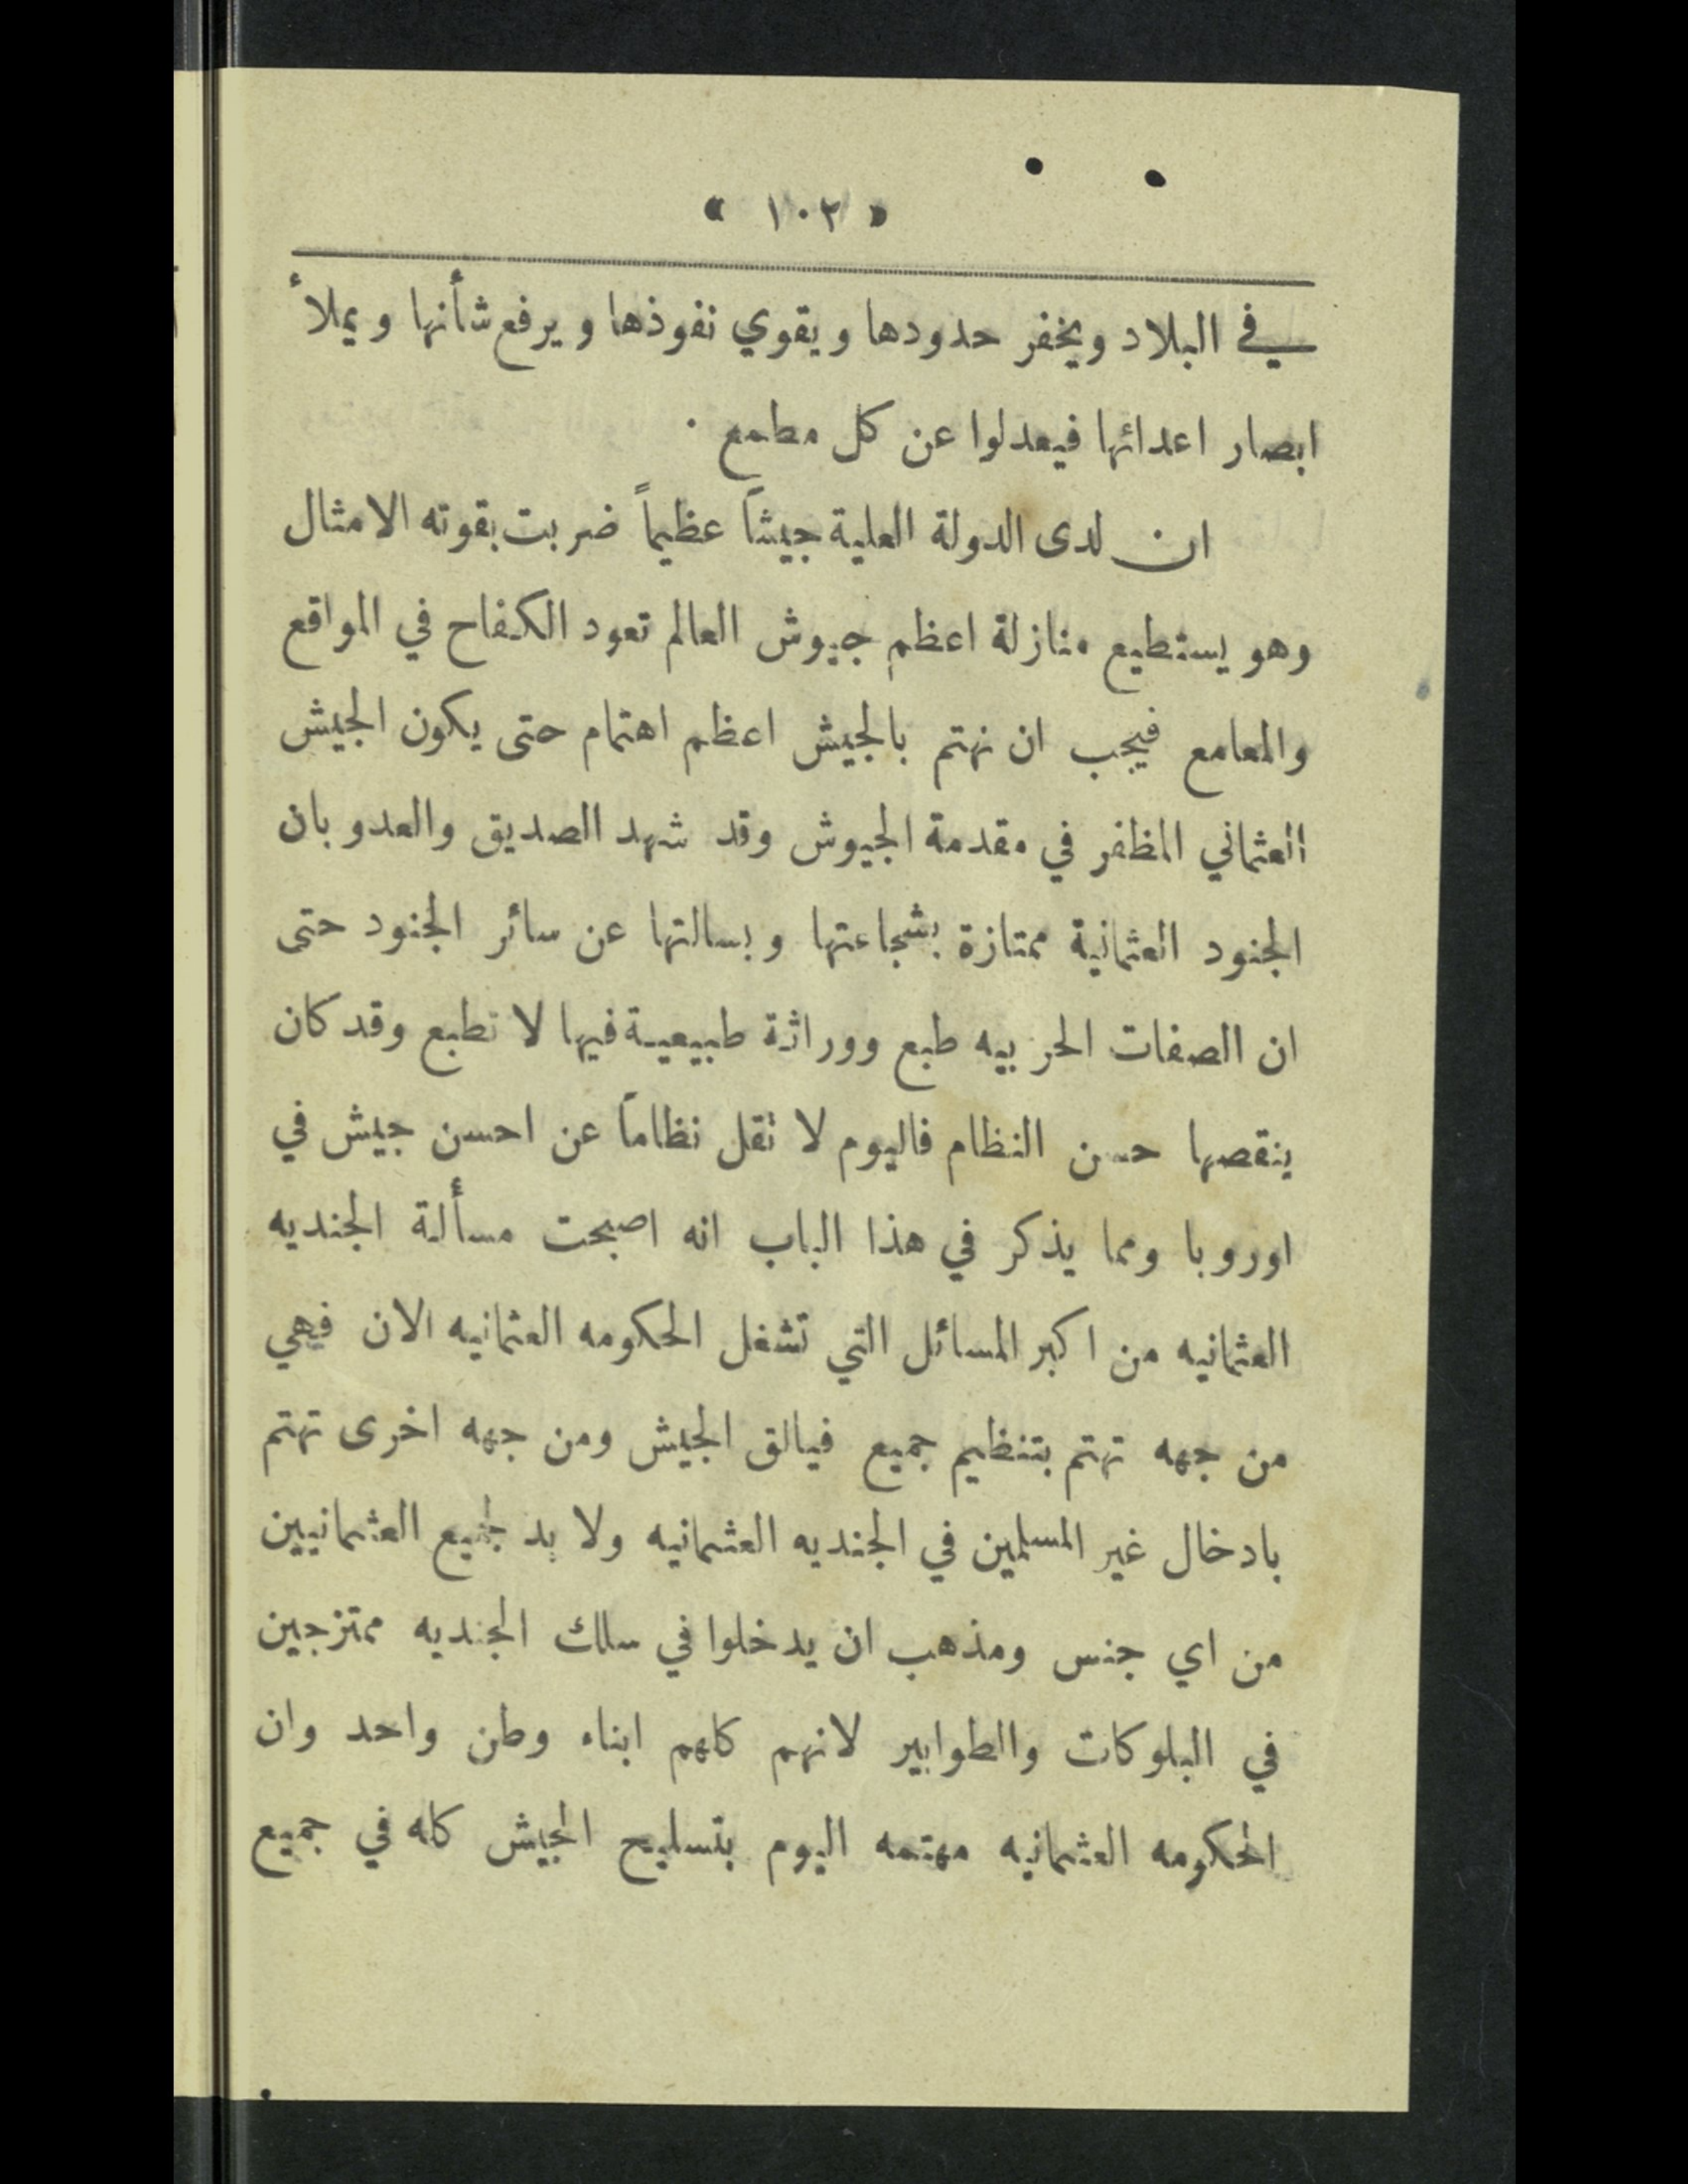 « ١٠٢ »
في البلاد ويخفر حدودها ويقوي نفوذها ويرفع شأنها ويملأ
ابصار اعدائها فيعدلوا عن كل مطمع ٠
ان لدى الدولة العلية جيشاً عظيماً ضربت بقوته الامثال
وهو يستطيع منازلة اعظم جيوش العالم تعود الكفاح في المواقع
والمعامع فيجب ان نهتم بالجيش اعظم اهتمام حتى يكون الجيش
العثماني المظفر في مقدمة الجيوش وقد شهد الصديق والعدو بان
الجنود العثمانية ممتازة بشجاعتها وبسالتها عن سائر الجنود حتى
ان الصفات الحربيه طبع ووراثة طبيعية فيها لا تطبع وقد كان
ينقصها حسن النظام فاليوم لا تقل نظاماً عن احسن جيش في
اوروبا ومما يذكر في هذا الباب انه اصبحت مسألة الجنديه
العثمانيه من اكبر المسائل التي تشغل الحكومه العثمانيه الان فهي
من جهه تهتم بتنظيم جميع فيالق الجيش ومن جهه اخرى تهتم
بادخال غير المسلمين في الجنديه العثمانيه ولا بد لجميع العثمانيين
من اي جنس ومذهب ان يدخلوا في سلك الجنديه ممتزجين
في البلوكات والطوابير لانهم كلهم ابناء وطن واحد وان
الحكومه العثمانيه مهتمه اليوم بتسليح الجيش كله في جميع